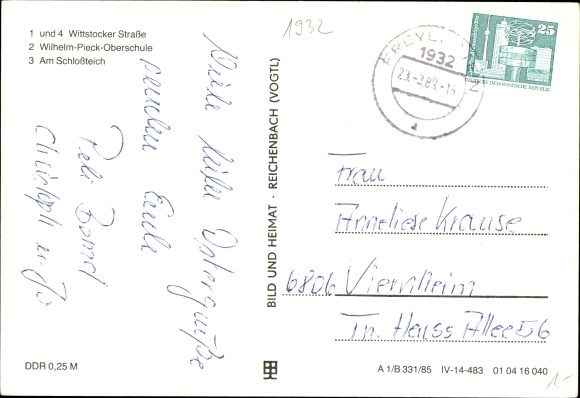 1 und 4 Wittstocker Straße
2 Wilhelm-Pieck-Oberschule
3 Am Schloßteich
1932
Viele liebe Ostergrüße
senden Euch
Peli Bernd
Christoph u. Jo
DDR 0,25 M
BILD UND HEIMAT · REICHENBACH (VOGTL)
FREYE
1932
23.-3.89.-14
25
DEUTSCHE DEMOKRATISCHE REPUBLIK
Frau
Anneliese Krause
6806 Viernheim
Th. Heuss Allee 56
A 1/B 331/85 IV-14-483 01 04 16 040
1,-